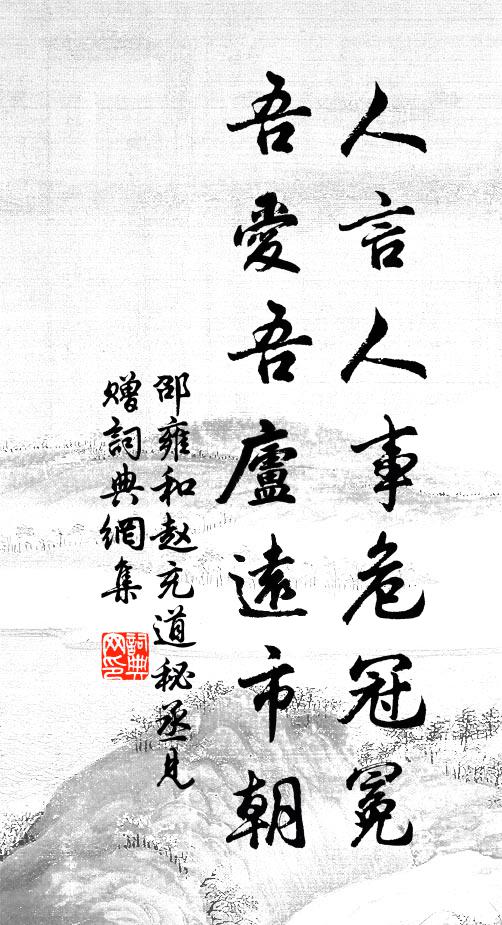 人言人事危冠冕
吾愛吾廬遠市朝
邵雍和赵充道秘丞見
贈詞典網集
詞典
网印